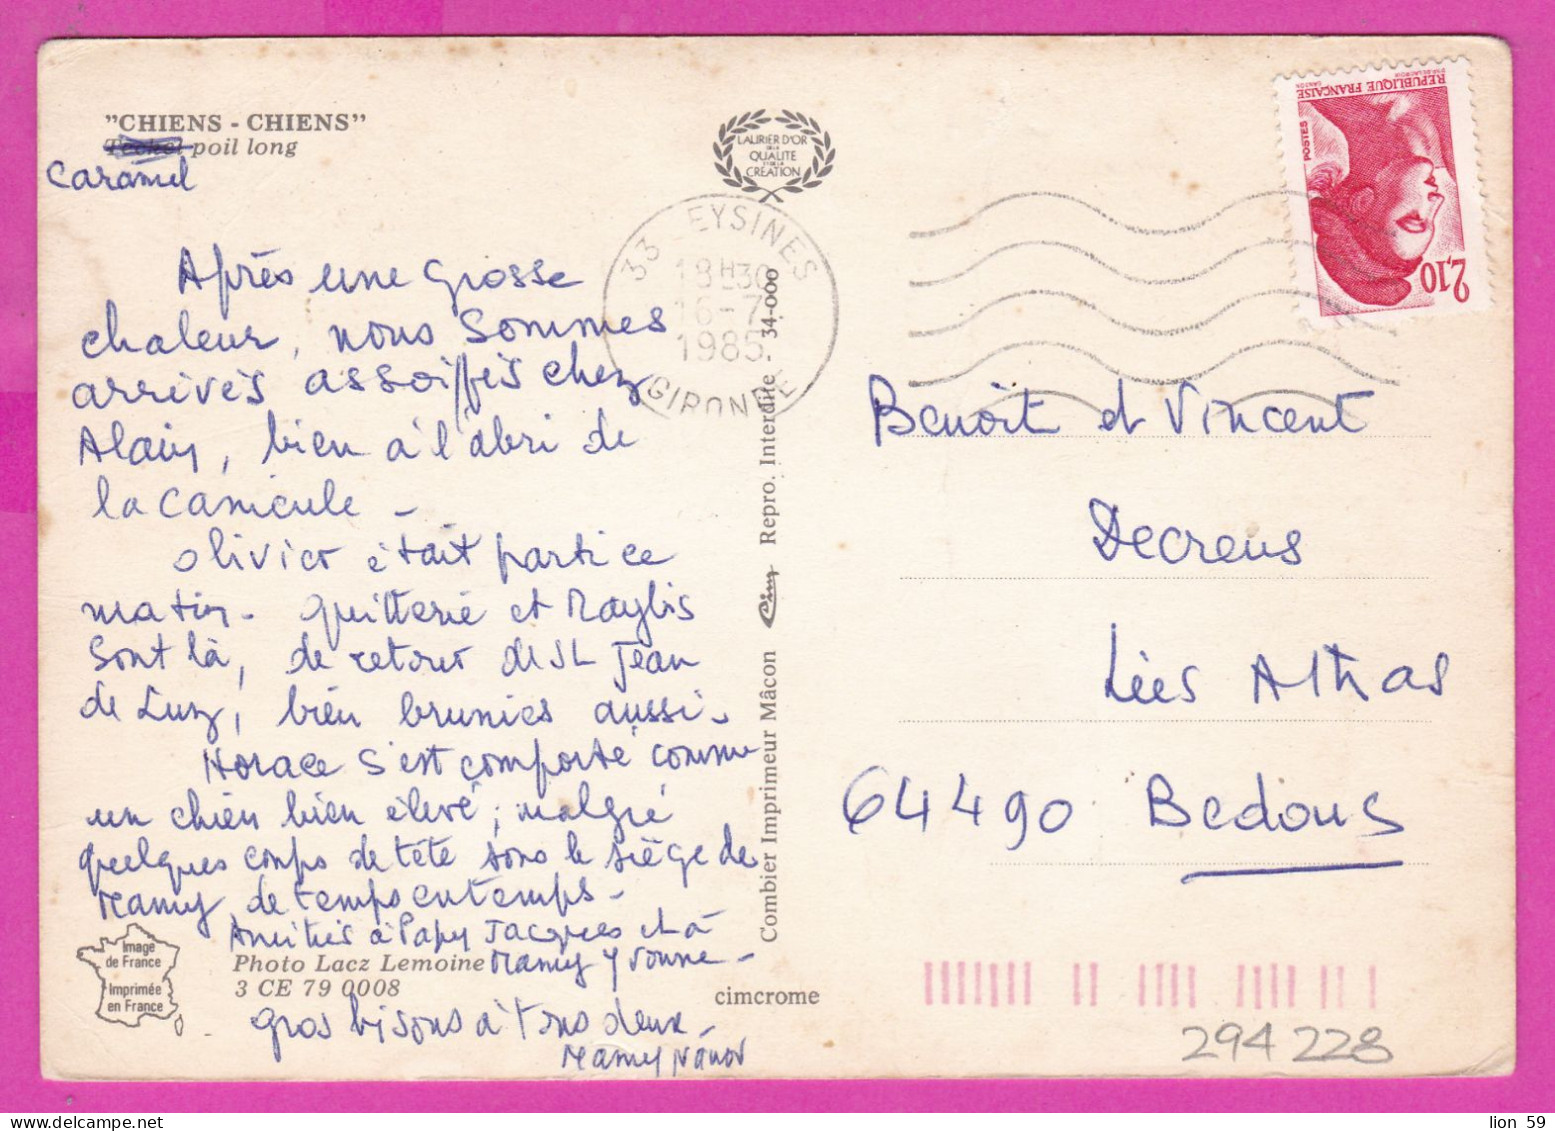 "CHIENS - CHIENS"
Teckel poil long
Caramel
LAURIER D'OR
DE LA
QUALITE
ET DE LA
CREATION
33 EYSINES
18H30
16-7
1985
GIRONDE
REPUBLIQUE FRANÇAISE
POSTES
2,10
Après une grosse
chaleur, nous sommes
arrivés assoiffés chez
Alain, bien à l'abri de
la canicule -
Olivier était parti ce
matin - Quitterie et Maylis
sont là, de retour de St Jean
de Luz, bien brunies aussi -
Horace s'est comporté comme
un chien bien élevé ; malgré
quelques coups de tête sous le siège de
Mamy, de temps en temps -
Amitiés à Papy Jacques et à
Mamy Yvonne -
Gros bisous à tous deux -
Mamy
Benoît et Vincent
Decreus
Lées Athas
64490 Bedous
Combier Imprimeur Mâcon Cim Repro. Interdite. 34-000
Image
de France
Imprimée
en France
Photo Lacz Lemoine
3 CE 79 0008
cimcrome
294 228
lion 59